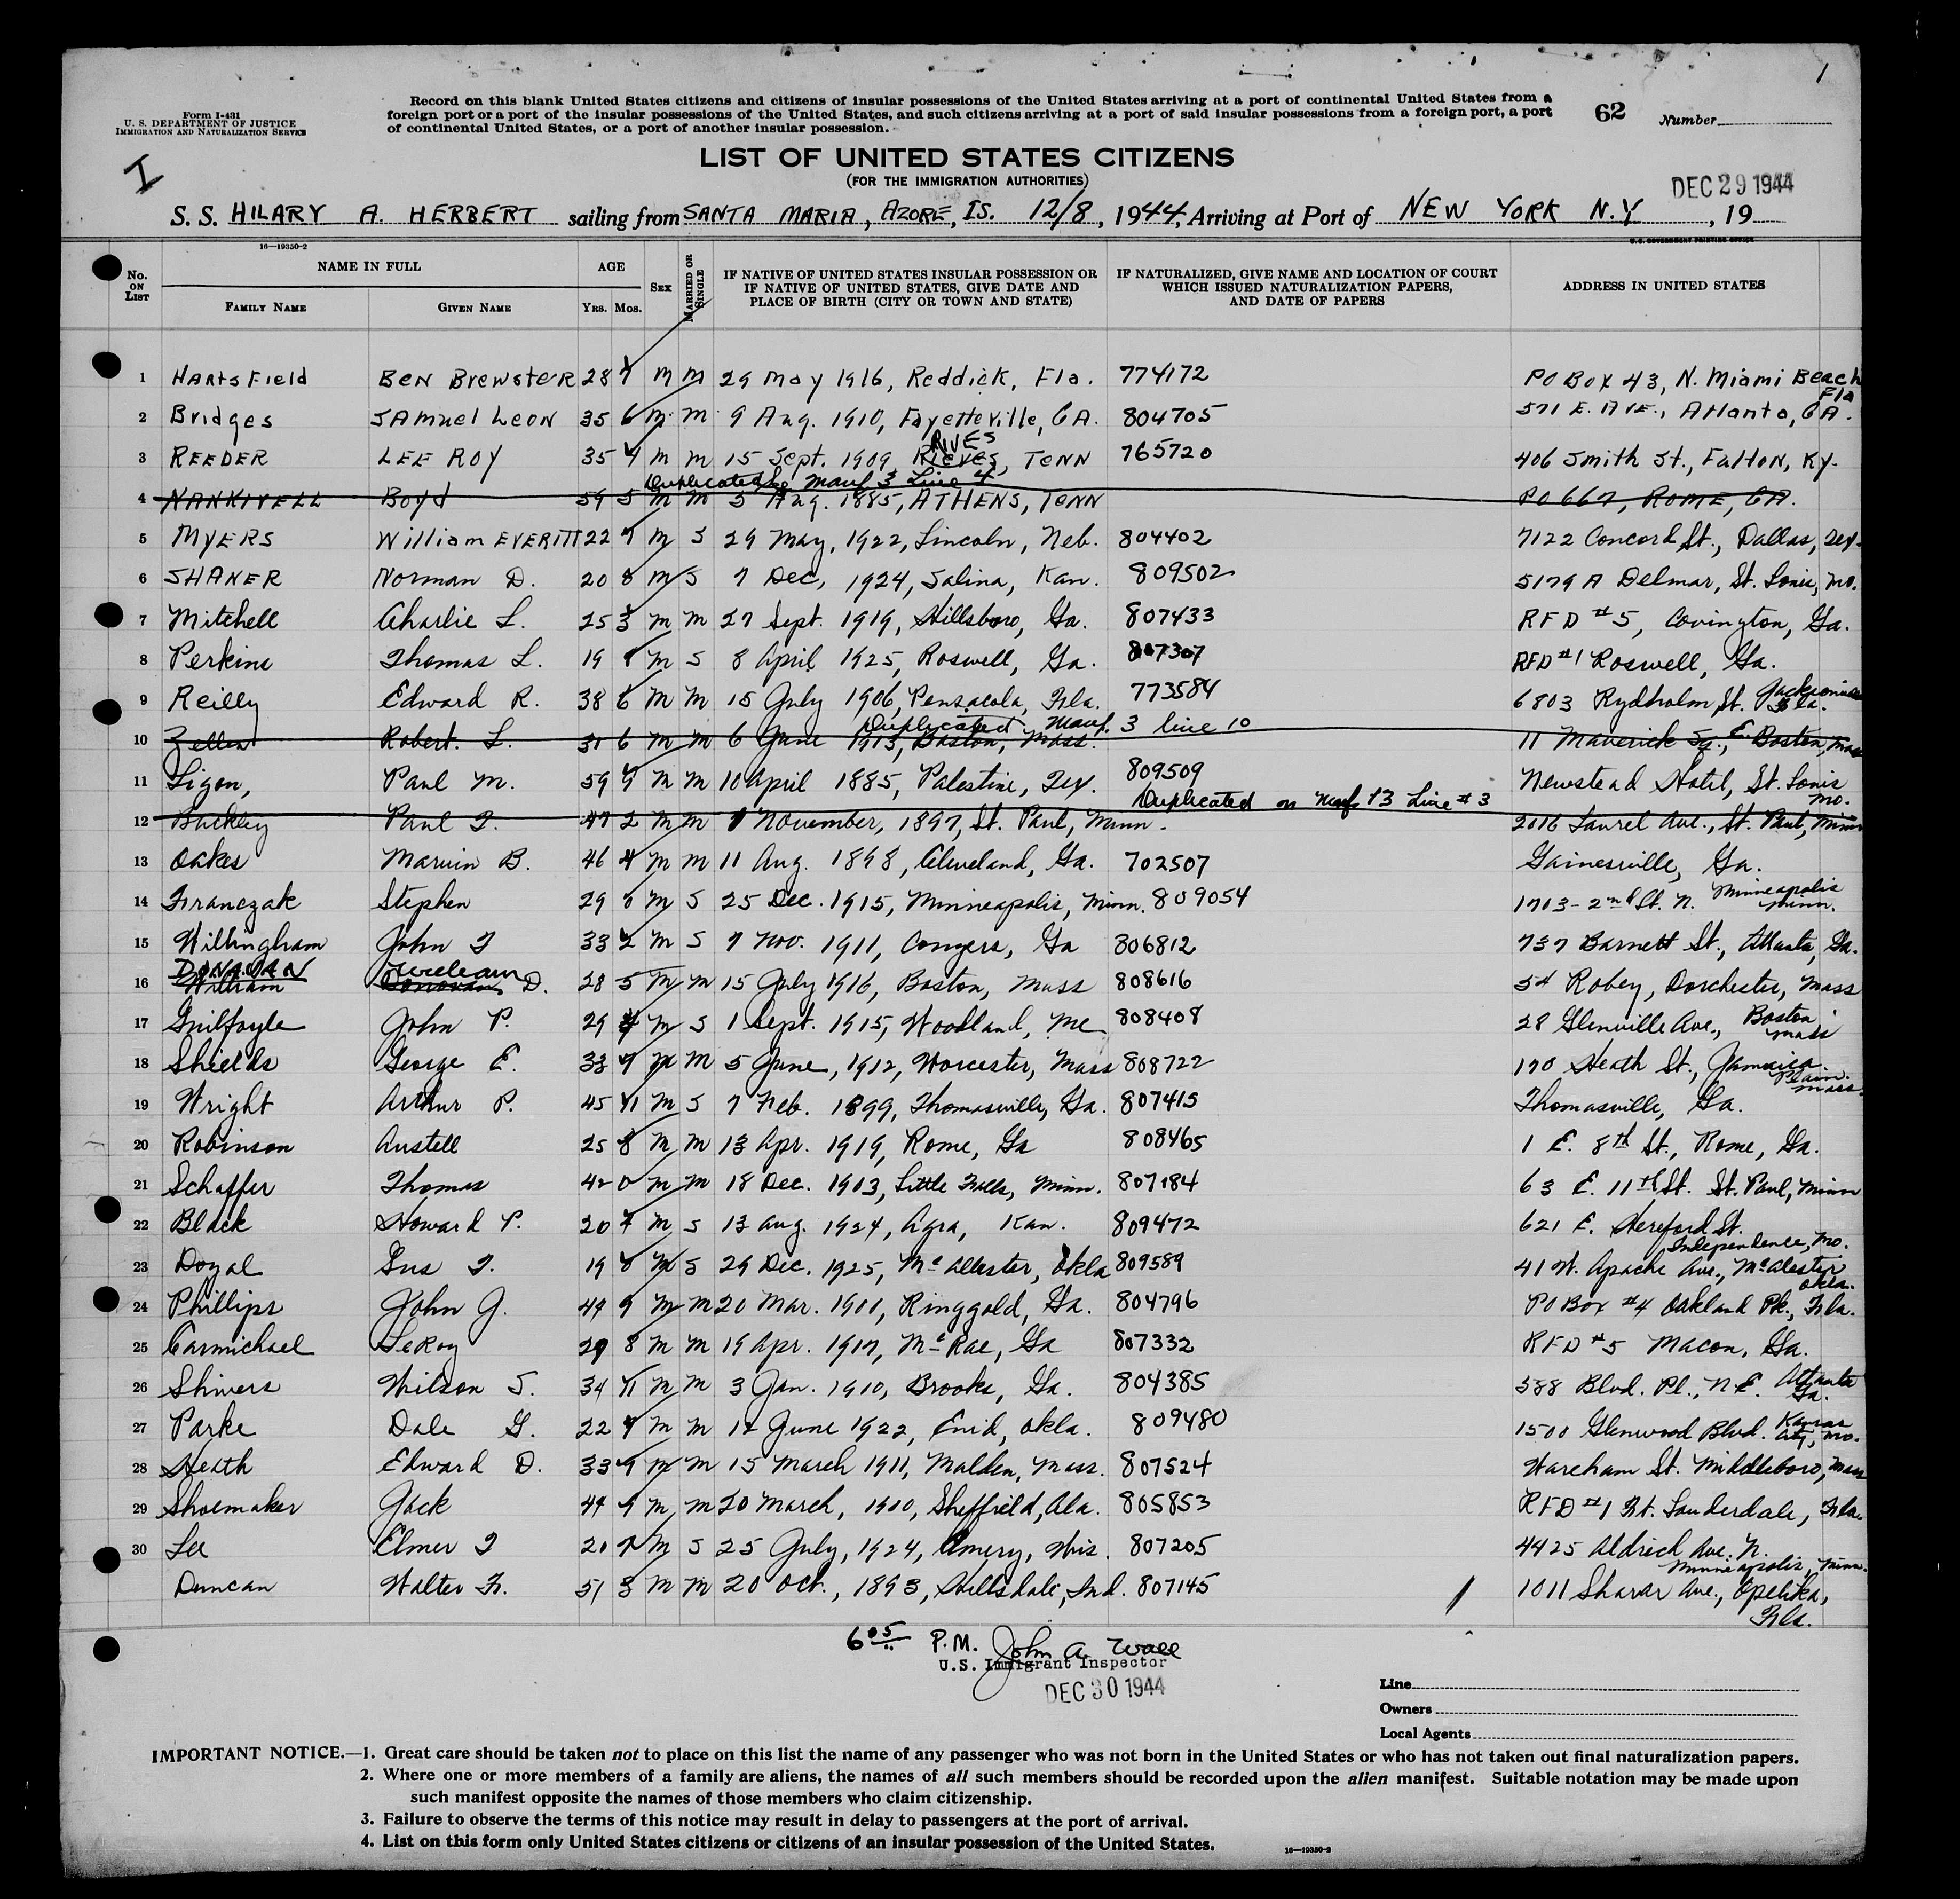 1
Form I-431
U. S. DEPARTMENT OF JUSTICE
IMMIGRATION AND NATURALIZATION SERVICE
Record on this blank United States citizens and citizens of insular possessions of the United States arriving at a port of continental United States from a
foreign port or a port of the insular possessions of the United States, and such citizens arriving at a port of said insular possessions from a foreign port, a port
of continental United States, or a port of another insular possession.
62 Number
I
LIST OF UNITED STATES CITIZENS
(FOR THE IMMIGRATION AUTHORITIES)
DEC 29 1944
S. S. HILARY A. HERBERT sailing from SANTA MARIA, AZORE, IS. 12/8, 1944, Arriving at Port of NEW YORK N.Y, 19
16—19350-2 U.S. GOVERNMENT PRINTING OFFICE
No. ON LIST NAME IN FULL AGE SEX MARRIED OR SINGLE IF NATIVE OF UNITED STATES INSULAR POSSESSION OR IF NATIVE OF UNITED STATES, GIVE DATE AND PLACE OF BIRTH (CITY OR TOWN AND STATE) IF NATURALIZED, GIVE NAME AND LOCATION OF COURT WHICH ISSUED NATURALIZATION PAPERS, AND DATE OF PAPERS ADDRESS IN UNITED STATES
FAMILY NAME GIVEN NAME YRS. MOS.
1 HartsField Ben Brewster 28 7 m m 29 May 1916, Reddick, Fla. 774172 PO Box 43, N. Miami Beach Fla
2 Bridges Samuel Leon 35 6 m m 9 Aug. 1910, Fayetteville, GA. 804705 571 E. AVE., Atlanta, GA.
3 REEDER LEE ROY 35 4 m m 15 Sept. 1909, Rieves, TENN 765720 406 Smith St., Fulton, Ky.
RIVES
Duplicated Manf 3 Line 4
4 NANKIVELL Boyd 59 5 m m 5 Aug. 1885, ATHENS, TENN PO 667, ROME, GA.
5 MYERS William EVERITT 22 7 m S 29 May, 1922, Lincoln, Neb. 804402 7122 Concord St., Dallas, Tex.
6 SHANER Norman D. 20 8 m S 7 Dec, 1924, Salina, Kan. 809502 5179 A Delmar, St. Louis, Mo.
7 Mitchell Charlie L. 25 3 m m 27 Sept. 1919, Hillsboro, Ga. 807433 RFD #5, Covington, Ga.
8 Perkins Thomas L. 19 8 m S 8 April 1925, Roswell, Ga. 807307 RFD #1 Roswell, Ga.
9 Reilly Edward R. 38 6 m m 15 July 1906, Pensacola, Fla. 773584 6803 Rydholm St. Jacksonville Fla.
Duplicated Manf. 3 line 10
10 Zeller Robert L. 31 6 m m 6 June 1913, Boston, Mass. 11 Maverick Sq., E. Boston, Mass
11 Ligon, Paul M. 59 9 m m 10 April 1885, Palestine, Tex. 809509 Newstead Hotel, St. Louis Mo.
Duplicated on Manf #3 Line #3
12 Buckley Paul T. 47 2 m m 1 November, 1897, St. Paul, Minn. 2016 Laurel Ave., St. Paul, Minn
13 Oakes Marvin B. 46 4 m m 11 Aug. 1898, Cleveland, Ga. 702507 Gainesville, Ga.
14 Franczak Stephen 29 0 m S 25 Dec. 1915, Minneapolis, Minn. 809054 1713 - 2nd St. N. Minneapolis Minn.
15 Willingham John T 33 2 m S 7 Nov. 1911, Conyers, Ga 806812 737 Barnett St., Atlanta, Ga.
DONOVAN William
16 William Donovan D. 28 5 m m 15 July 1916, Boston, Mass 808616 54 Robey, Dorchester, Mass
17 Guilfoyle John P. 29 4 m S 1 Sept. 1915, Woodland, Me 808408 28 Glenville Ave., Boston Mass
18 Shields George E. 33 7 m m 5 June, 1912, Worcester, Mass 808722 170 Heath St., Jamaica Plain. Mass.
19 Wright Arthur P. 45 11 m S 7 Feb. 1899, Thomasville, Ga. 807415 Thomasville, Ga.
20 Robinson Austell 25 8 m m 13 Apr. 1919, Rome, Ga 808465 1 E. 8th St., Rome, Ga.
21 Schaffer Thomas 42 0 m m 18 Dec. 1903, Little Falls, Minn. 807184 63 E. 11th St. St. Paul, Minn
22 Black Howard P. 20 4 m S 13 Aug. 1924, Agra, Kan. 809472 621 E. Hereford St. Independence, Mo.
23 Doyal Gus T. 19 0 m S 29 Dec. 1925, McAllester, Okla 809589 41 W. Apache Ave., McAlester Okla.
24 Phillips John J. 44 9 m m 20 Mar. 1901, Ringgold, Ga. 804796 PO Box #4 Oakland Pk., Fla.
25 Carmichael LeRoy 29 8 m m 19 Apr. 1917, McRae, Ga 807332 RFD #5 Macon, Ga.
26 Shivers Wilson S. 34 11 m m 3 Jan. 1910, Brooks, Ga. 804385 588 Blvd. Pl., N.E. Atlanta Ga.
27 Parke Dale G. 22 4 m m 14 June 1922, Enid, Okla. 809480 1500 Glenwood Blvd. Kansas City, Mo.
28 Heath Edward D. 33 9 m m 15 March 1911, Malden, Mass. 807524 Wareham St. Middleboro, Mass
29 Shoemaker Jack 44 9 m m 20 March, 1900, Sheffield, Ala. 805853 RFD #1 Ft. Lauderdale, Fla.
30 Lee Elmer T 20 7 m S 25 July, 1924, Amery, Wis. 807205 4425 Aldrich Ave. N. Minneapolis, Minn.
Duncan Walter Fr. 51 3 m m 20 Oct., 1893, Hillsdale, Ind. 807145 1011 Sharar Ave., Opelika, Fla.
6 05 P.M. John A. Wall
U.S. Immigrant Inspector
DEC 30 1944
Line
Owners
Local Agents
IMPORTANT NOTICE.—1. Great care should be taken not to place on this list the name of any passenger who was not born in the United States or who has not taken out final naturalization papers.
2. Where one or more members of a family are aliens, the names of all such members should be recorded upon the alien manifest. Suitable notation may be made upon
such manifest opposite the names of those members who claim citizenship.
3. Failure to observe the terms of this notice may result in delay to passengers at the port of arrival.
4. List on this form only United States citizens or citizens of an insular possession of the United States.
16—19350-2